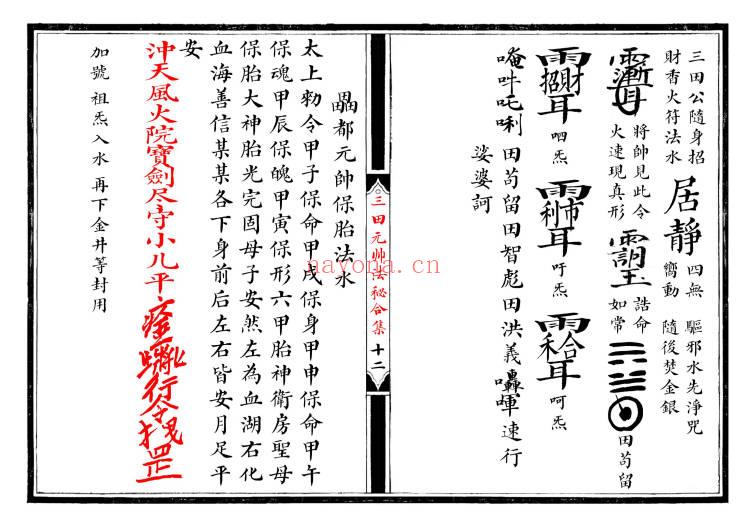 三田公隨身招
財香火符法水
居靜
四無 驅邪水先淨咒
嚮動 隨後焚金銀
將帥見此令
火速現真形
誥命
如常
田苟留
呬炁
吁炁
呵炁
唵吽吒唎 田苟留田智彪田洪義轟 速行
娑婆訶
三田元帅法秘合集 十二
都元帥保胎法水
太上勑令甲子保命甲戌保身甲申保命甲午
保魂甲辰保魄甲寅保形六甲胎神衛房聖母
保胎大神胎光完固母子安然左為血湖右化
血海善信某某各下身前后左右皆安月足平
安
沖天風火院寶劍尽守小儿平 行令 罡
加號祖炁入水 再下金井等封用
nayona.cn